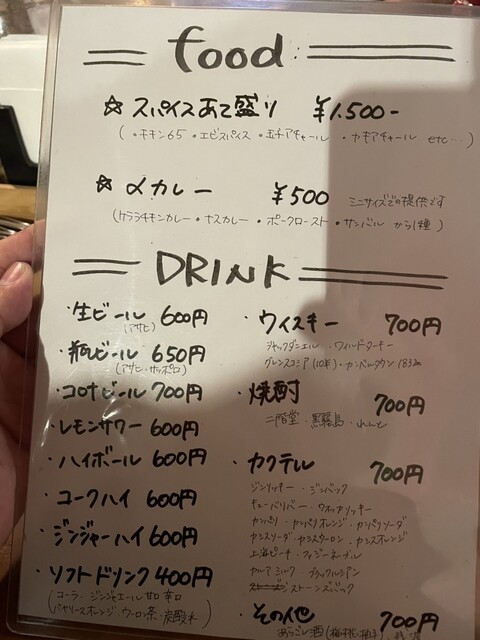 food
☆ スパイスあて盛り ¥1.500-
(・チキン65・エビスパイス・玉子アチャール・カキアチャール etc…)
☆ 〆カレー ¥500 ミニサイズでの提供です
(ケララチキンカレー・ナスカレー・ポークロースト・サンバル から1種)
DRINK
・生ビール 600円
(アサヒ)
・瓶ビール 650円
(アサヒ・サッポロ)
・コロナビール 700円
・レモンサワー 600円
・ハイボール 600円
・コークハイ 600円
・ジンジャーハイ 600円
・ソフトドリンク 400円
(コーラ・ジンジャエール甘口辛口
バヤリースオレンジ・ウーロン茶・炭酸水)
・ウィスキー 700円
ジャックダニエル・ワイルドターキー
グレンスコシア(10年)・カンベルタウン1832
・焼酎 700円
二階堂・黒霧島・れんと
・カクテル 700円
ジンリッキー・ジンバック
キューバリバー・ウオッカリッキー
カンパリ・カンパリオレンジ・カンパリソーダ
カシスソーダ・カシスウーロン・カシスオレンジ
上海ピーチ・ファジーネーブル
カルアミルク・ブラックルシアン
ストーンズジンバック
・その他 700円
あらごし酒(梅子・桃子)